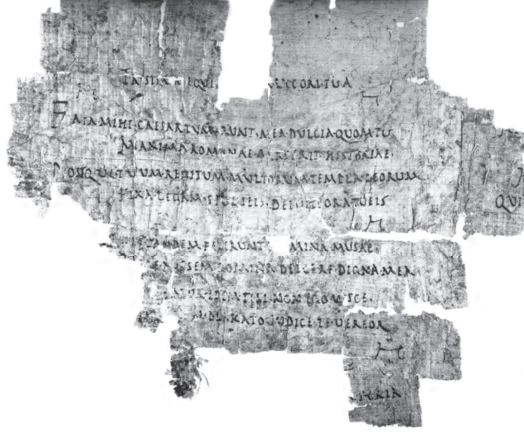 LYCORI·TVA
FATA·MIHI·CAESAR·TVM·ERVNT·MEA·DVLCIA·QVOM·TV
MAXIMA·ROMANAE·PARS·ERIT·HISTORIAE
POSTQVE·TVVM·REDITVM·MVLTORVM·TEMPLA·DEORVM
FIXA·LEGAM·SPOLIEIS·DEIVITIORA·TVEIS
TANDEM·FECERVNT· MINA·MVSAE
POSSEM·DOMINA·DEICERE·DIGNA·MEA
ATVR·IDEM·TIBI·NON·EGO·VISCE
KATO·IVDICE·TE·VEREOR
QVI